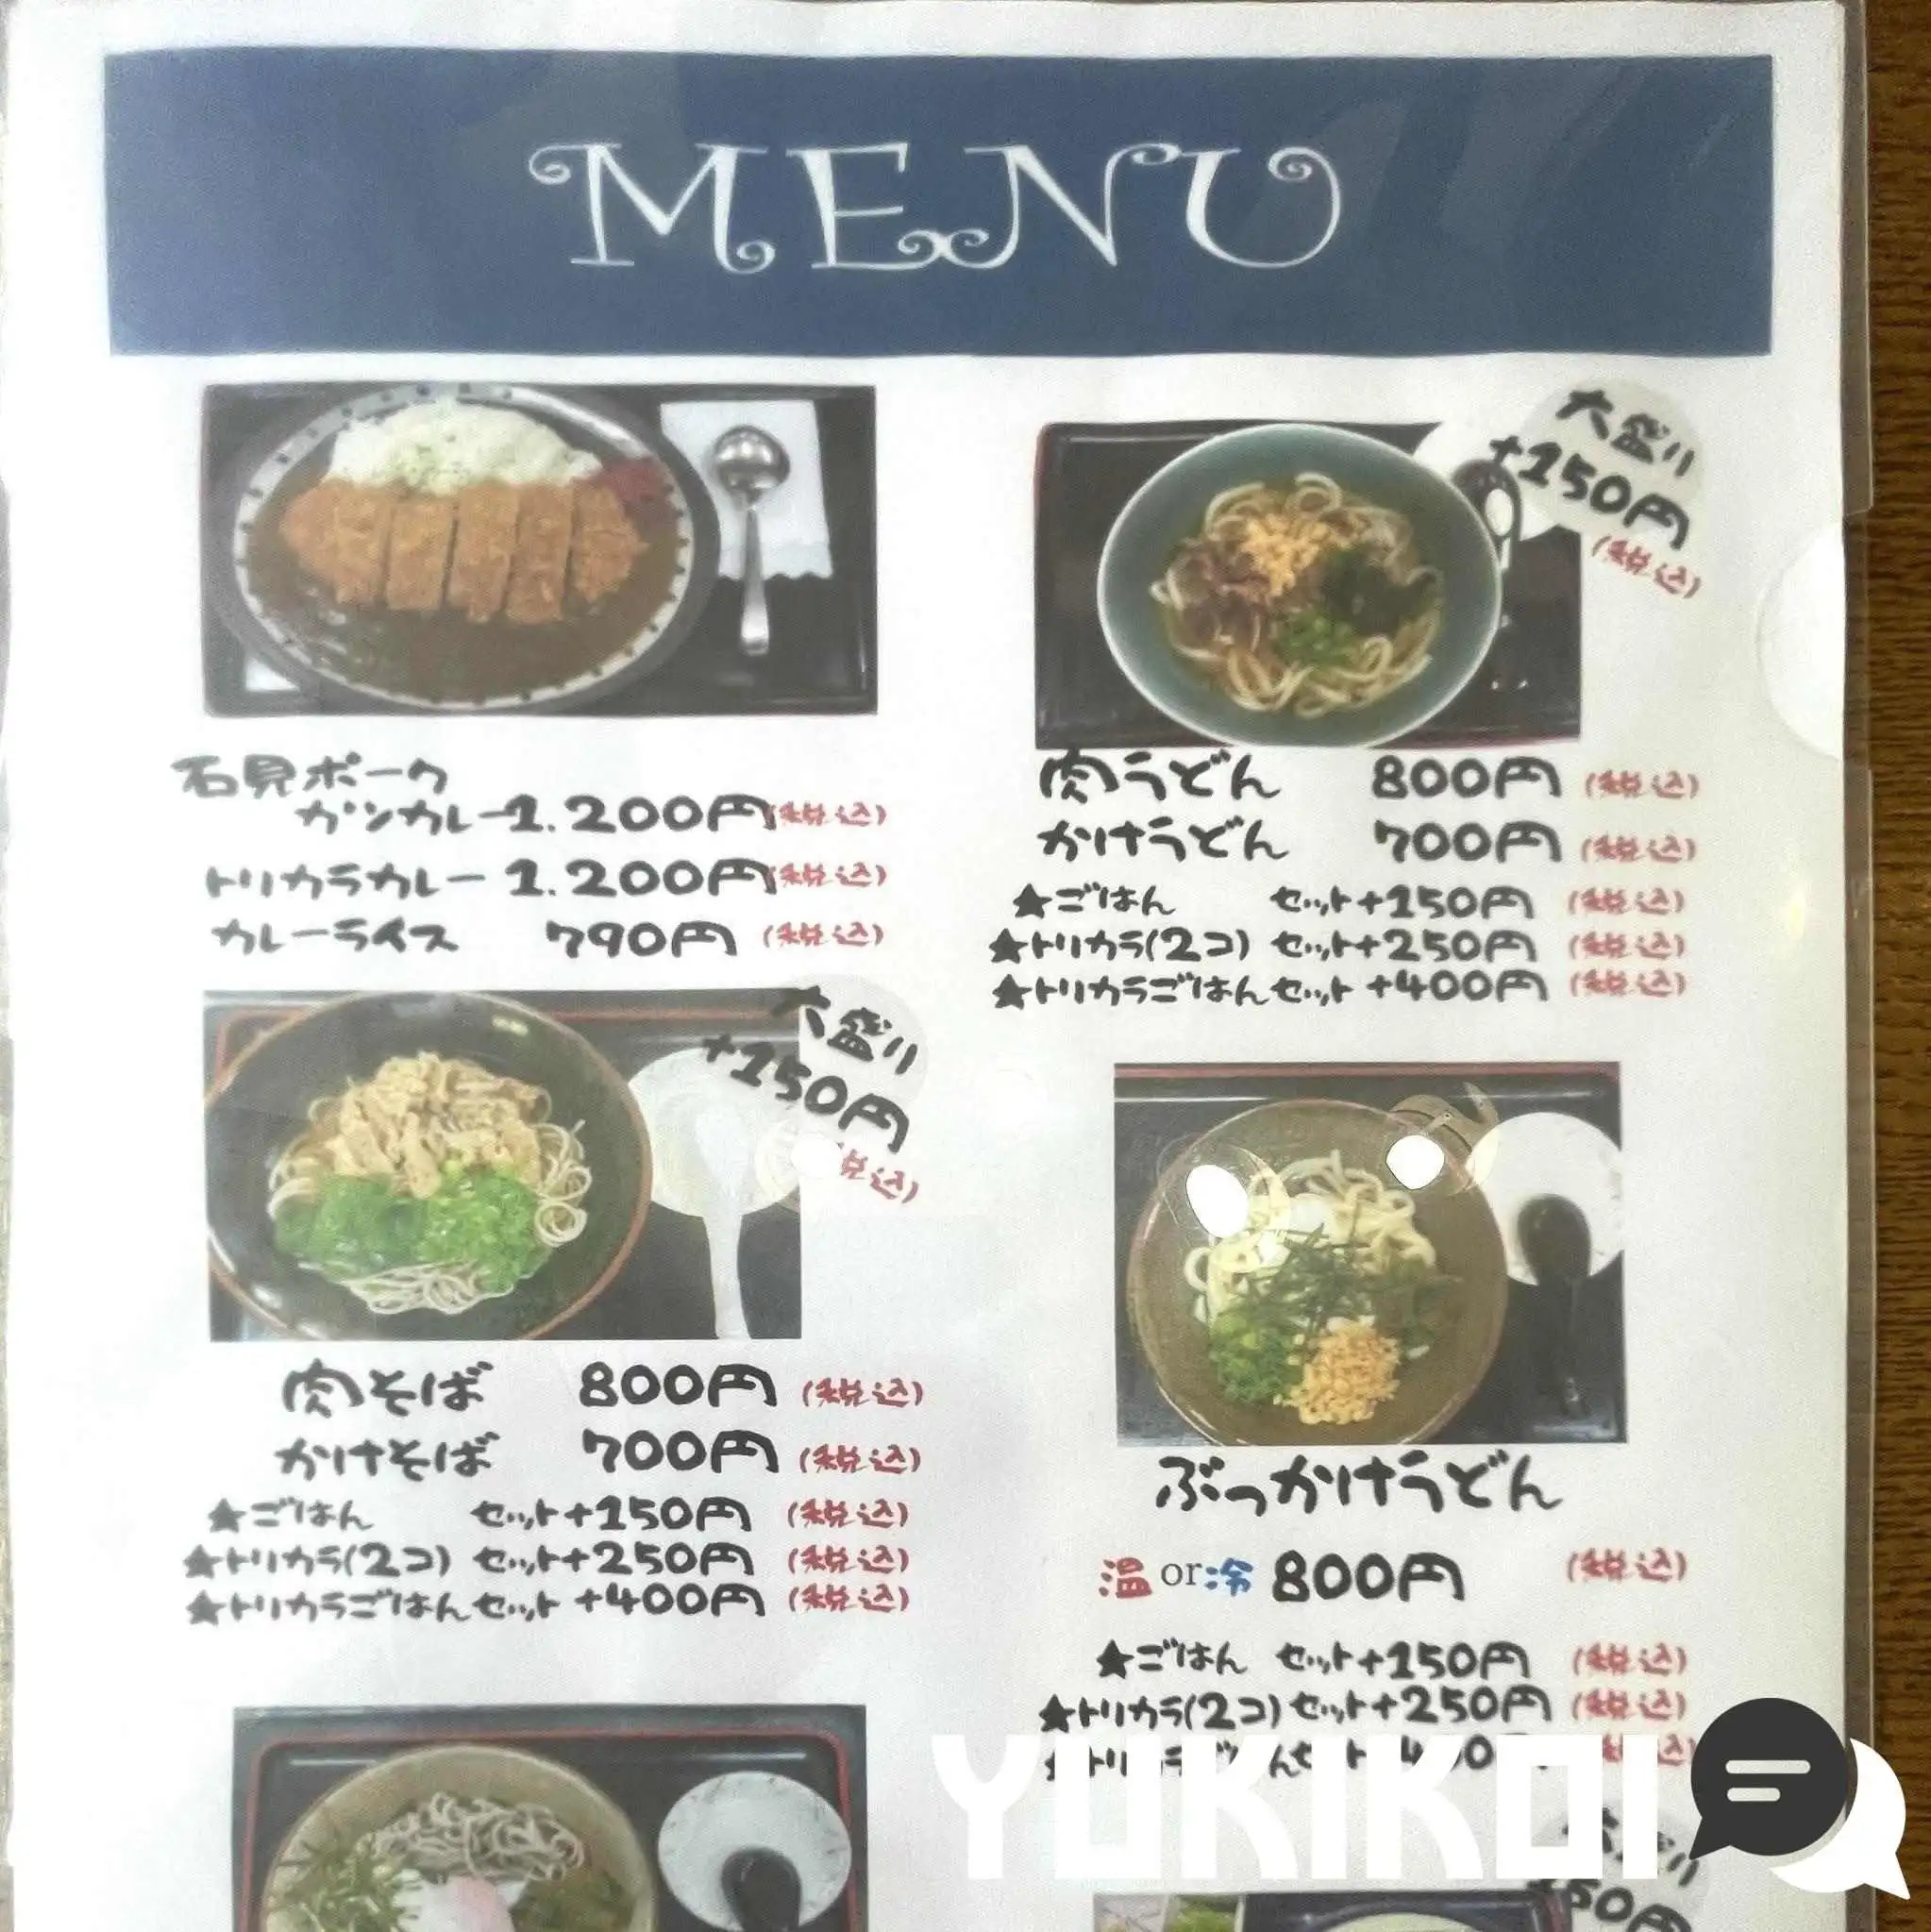 MENU
石見ポーク
カツカレー 1.200円 (税込)
トリカラカレー 1.200円 (税込)
カレーライス 790円 (税込)
大盛り
+150円
(税込)
肉うどん 800円 (税込)
かけうどん 700円 (税込)
★ごはん セット+150円 (税込)
★トリカラ(2コ) セット+250円 (税込)
★トリカラごはんセット +400円 (税込)
大盛り
+150円
税込)
肉そば 800円 (税込)
かけそば 700円 (税込)
★ごはん セット+150円 (税込)
★トリカラ(2コ) セット+250円 (税込)
★トリカラごはんセット +400円 (税込)
ぶっかけうどん
温or冷 800円 (税込)
★ごはん セット+150円 (税込)
★トリカラ(2コ) セット+250円 (税込)
YUKIKOI